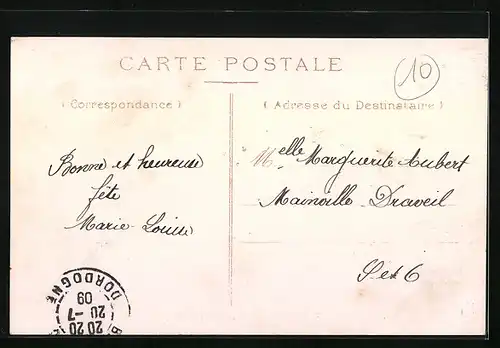 CARTE POSTALE
10
(Correspondance)
(Adresse du Destinataire)
Bonne et heureuse
fête
Marie-Louise
Melle Marguerite Aubert
Mainville Draveil
S et O
DORDOGNE
20 20
20-7
09